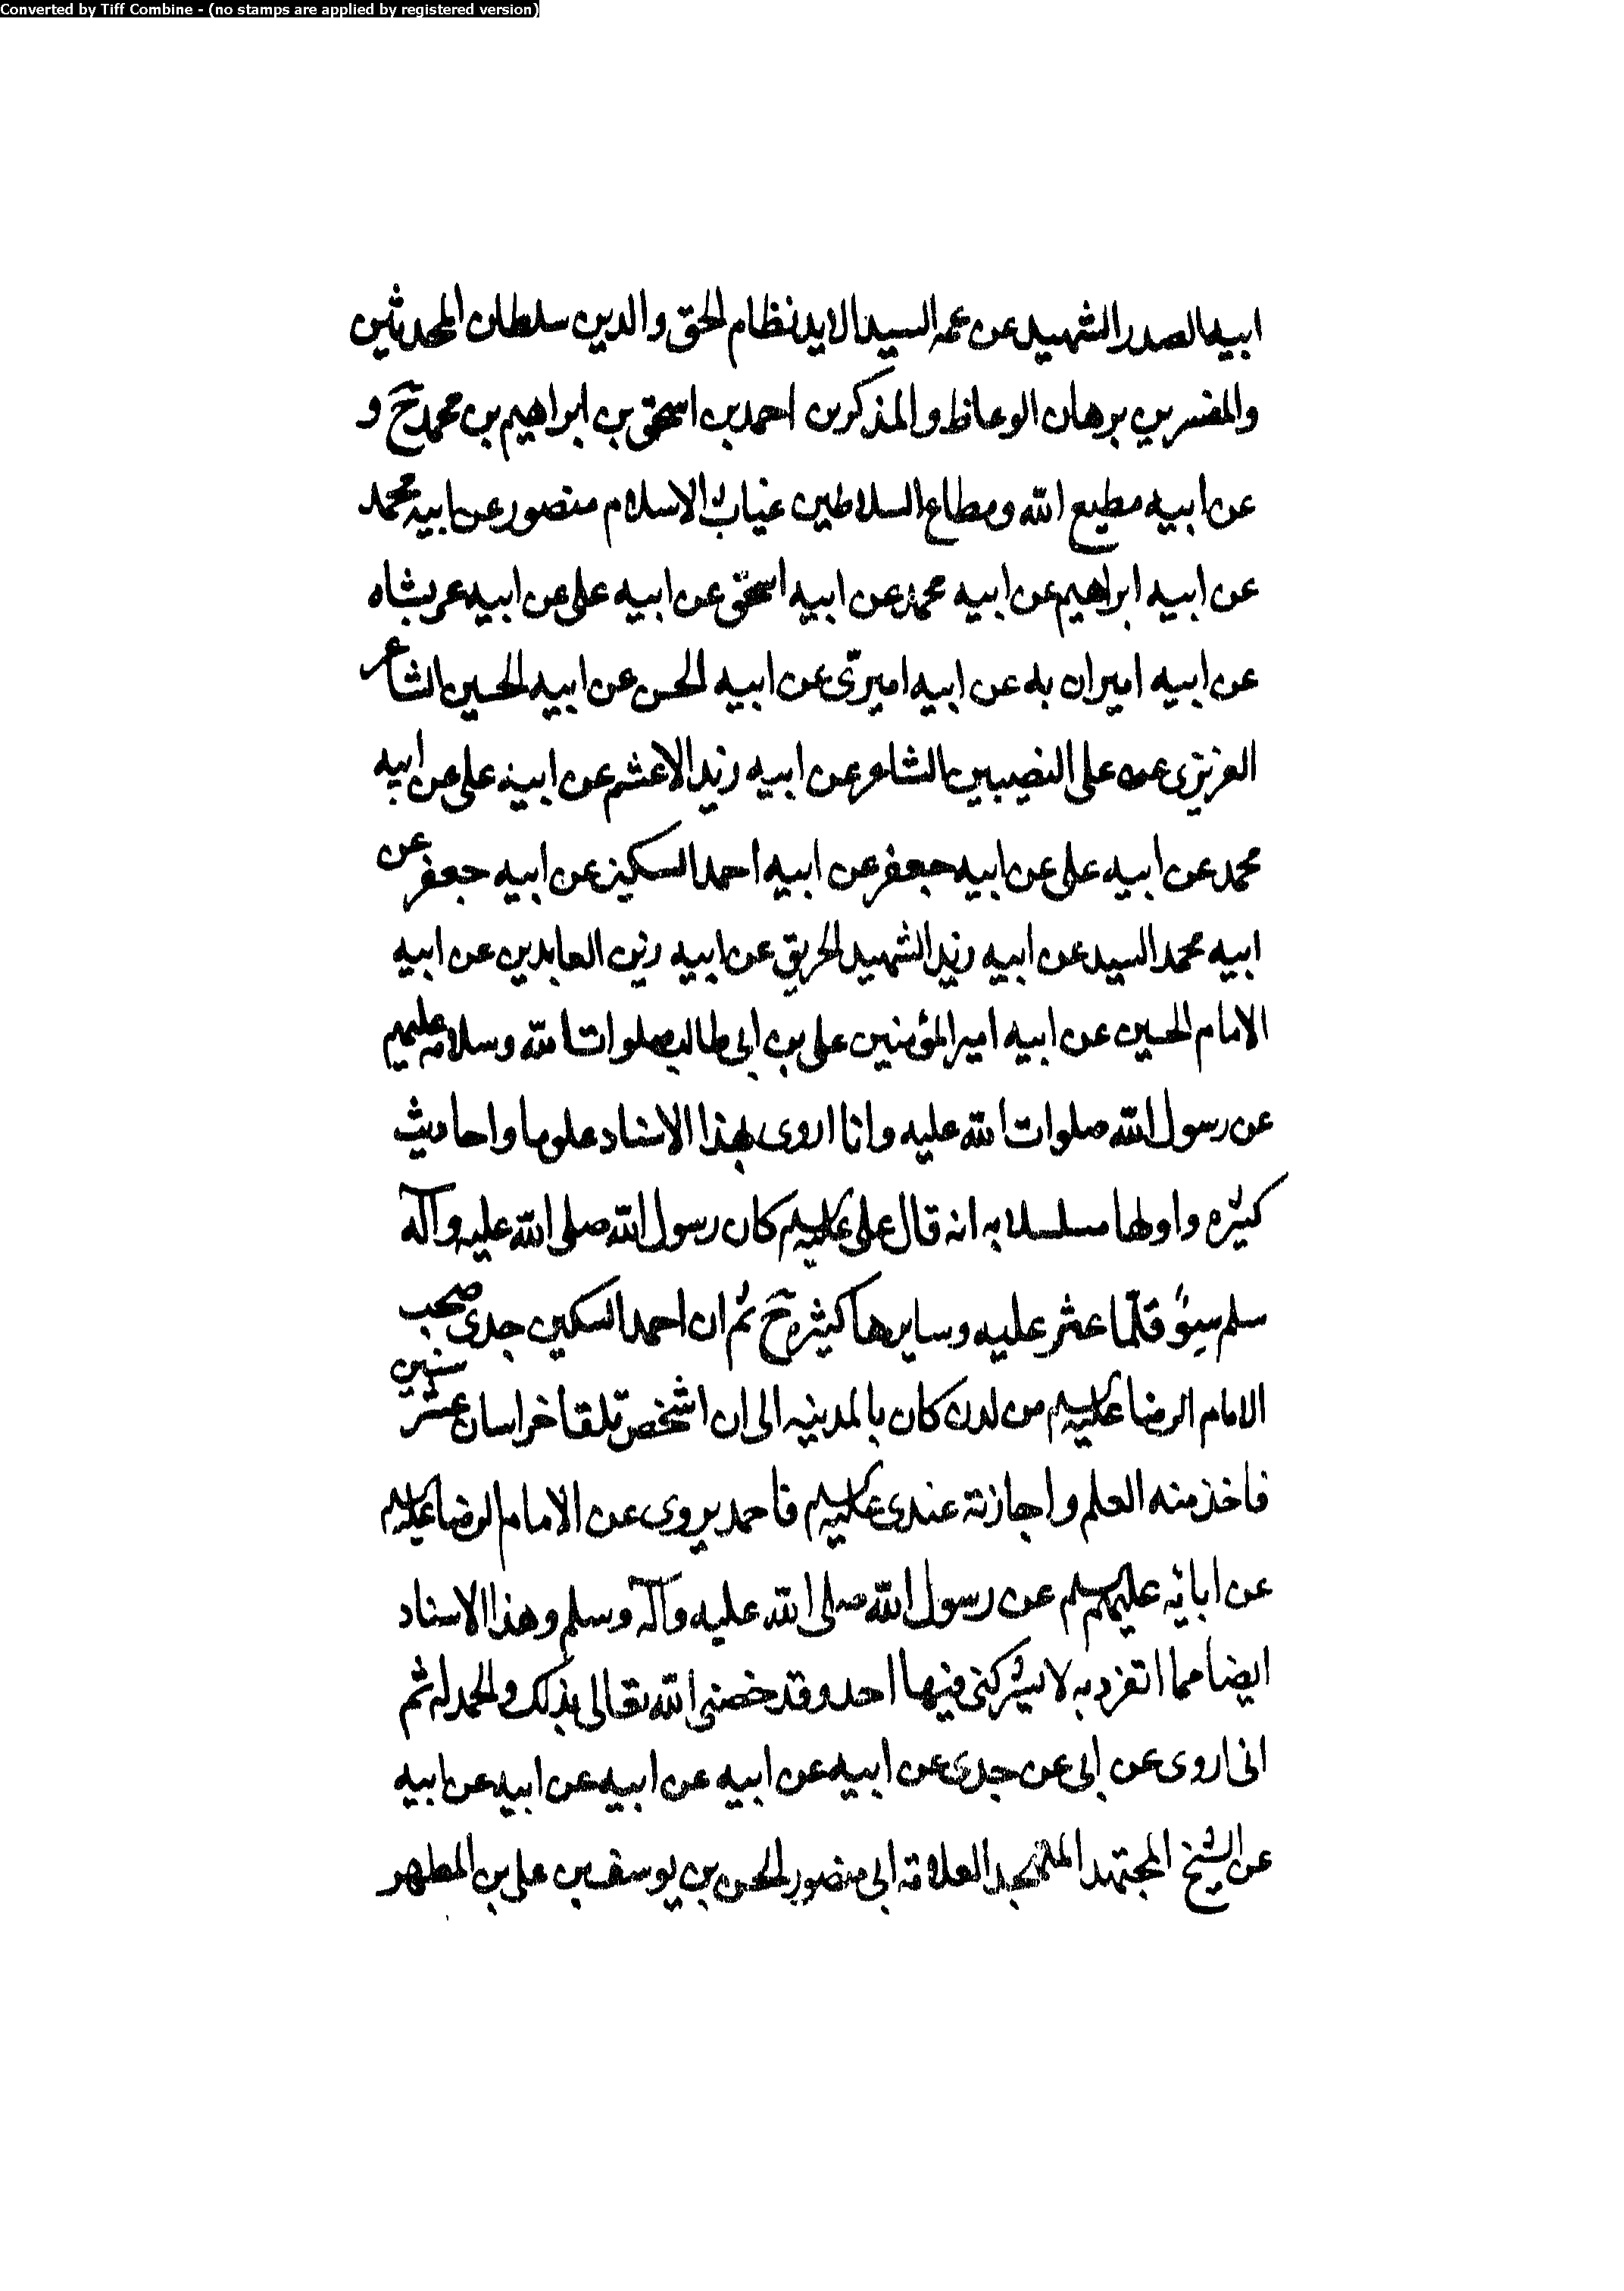 Converted by Tiff Combine - (no stamps are applied by registered version)
ابيه الصدر الشهيد عن عمه السيد الايد نظام الحق والدين سلطان المحدثين
والمفسرين برهان الوعاظ والمذكرين احمد بن اسحق بن ابراهيم بن محمد ح و
عن ابيه مطيع الله ومطاع السلاطين غياث الاسلام منصور عن ابيه محمد
عن ابيه ابراهيم عن ابيه محمد عن ابيه اسحق عن ابيه على عن ابيه عربشاه
عن ابيه اميران به عن ابيه اميرى عن ابيه الحسن عن ابيه الحسين الشاعر
العزيزى عن على النصيبين الشاعر عن ابيه زيد الاعشم عن ابيه على عن ابيه
محمد عن ابيه على عن ابيه جعفر عن ابيه احمد السكين عن ابيه جعفر عن
ابيه محمد السيد عن ابيه زيد الشهيد الحريق عن ابيه زين العابدين عن ابيه
الامام الحسين عن ابيه امير المؤمنين على بن ابى طالب صلوات الله وسلامه عليهم
عن رسول الله صلوات الله عليه وانا اروى بهذا الاسناد علوما واحاديث
كثيره واولها مسلسلا به انه قال على عليه السلم كان رسول الله صلى الله عليه وآله
سلم قلّما عثر عليه وسايرها كثيره ح ثم ان احمد السكين جدى صحب
الامام الرضا عليه السلم من لدن كان بالمدينه الى ان اشخص تلقا خراسان عشر سنين
فاخذ منه العلم واجازته عندى عليه السلم فاحمد يروى عن الامام الرضا عليه السلم
عن ابائه عليهم السلم عن رسول الله صلى الله عليه وآله وسلم وهذا الاسناد
ايضا مما اتفرد به لا يشركنى فيها احد وقد خصنى الله تعالى بذلك والحمد له ثم
انى اروى عن ابى عن جدى عن ابيه عن ابيه عن ابيه عن ابيه عن ابيه
عن الشيخ المجتهد العلامة ابى منصور الحسن بن يوسف بن على بن المطهر